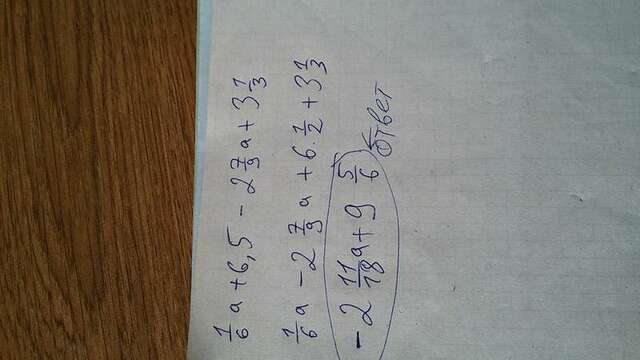 1/6 a + 6,5 - 2 7/9 a + 3 1/3
1/6 a - 2 7/9 a + 6 . 1/2 + 3 1/3
- 2 11/18 a + 9 5/6 ответ